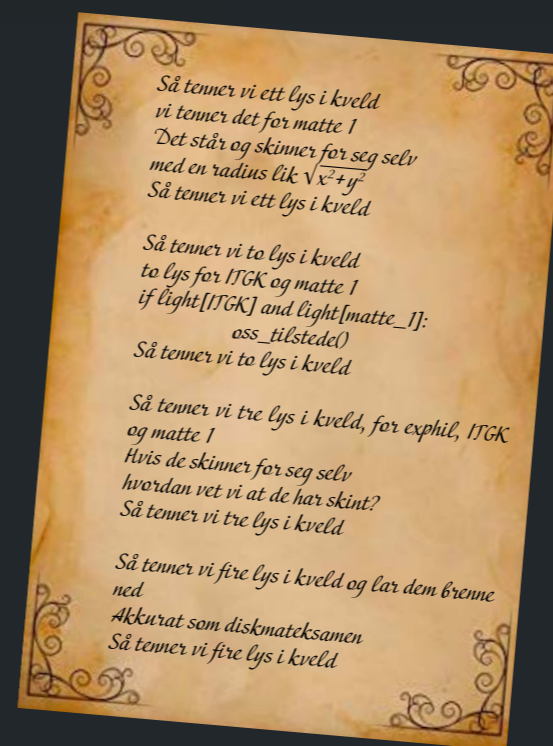 Så tenner vi ett lys i kveld
vi tenner det for matte 1
Det står og skinner for seg selv
med en radius lik √x²+y²
Så tenner vi ett lys i kveld
Så tenner vi to lys i kveld
to lys for ITGK og matte 1
if light[ITGK] and light[matte_1]:
oss_tilstede()
Så tenner vi to lys i kveld
Så tenner vi tre lys i kveld, for exphil, ITGK
og matte 1
Hvis de skinner for seg selv
hvordan vet vi at de har skint?
Så tenner vi tre lys i kveld
Så tenner vi fire lys i kveld og lar dem brenne
ned
Akkurat som diskmateksamen
Så tenner vi fire lys i kveld